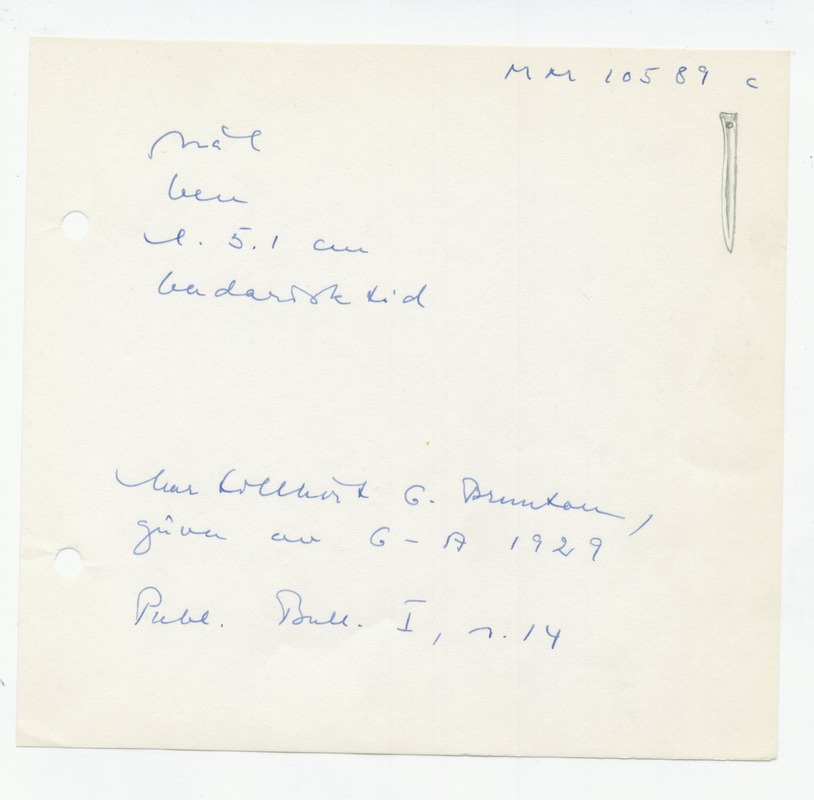 MM 10589 c
nål
ben
l. 5.1 cm
badarisk tid
har tillhört G. Brunton,
gåva av G-A 1929
Publ. Bull. I, s. 14